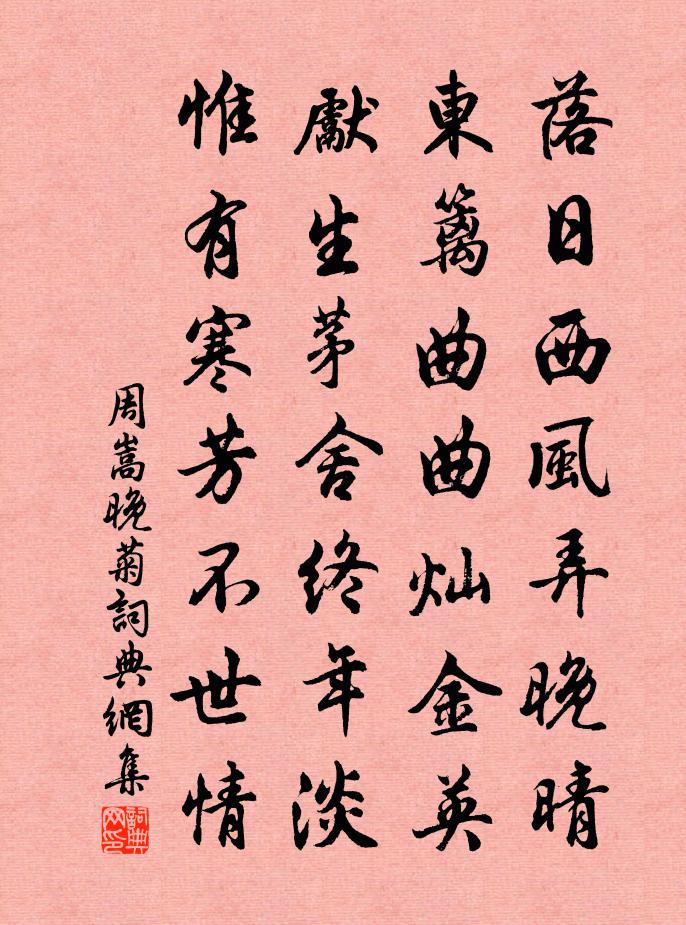 落日西風弄晚晴
東籬曲曲灿金英
獻生茅舍終年淡
惟有寒芳不世情
周嵩晚菊詞典網集
詞典网印